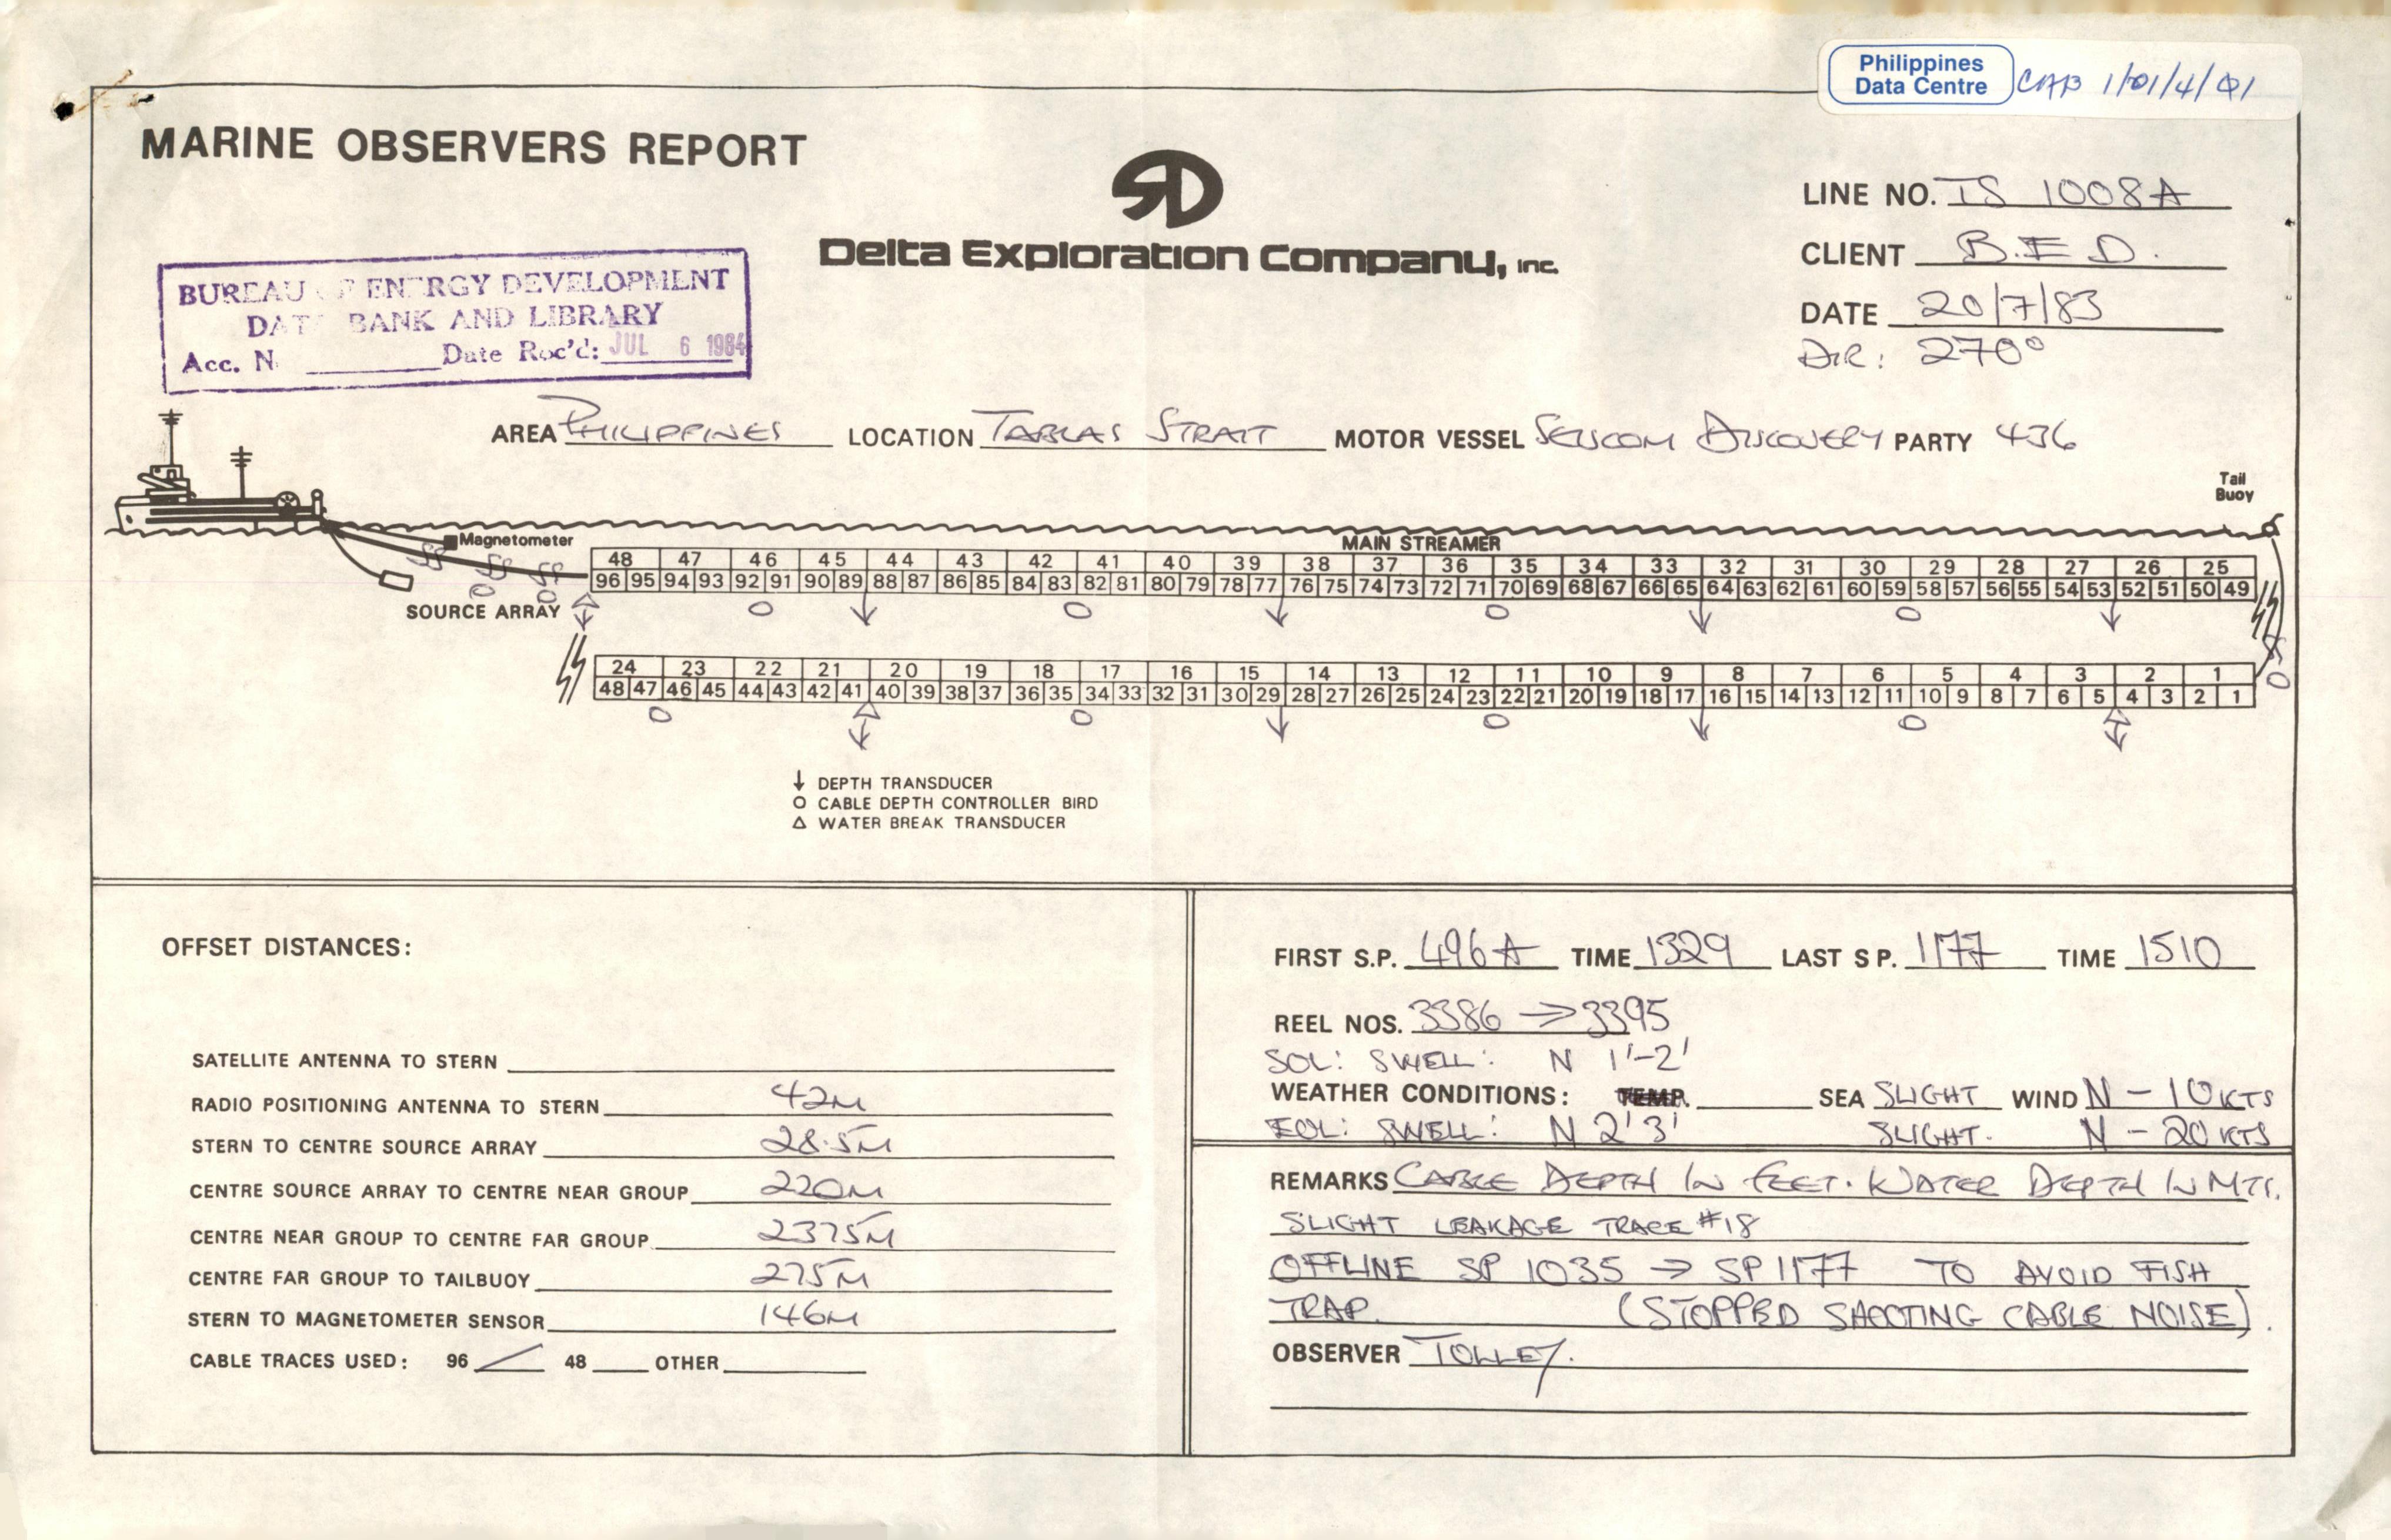 Philippines
Data Centre
1/01/4/01
MARINE OBSERVERS REPORT
Delta Exploration Company, Inc.
LINE NO. TS 1008A
CLIENT B.E.D.
DATE 20/7/83
DIR: 270°
BUREAU OF ENERGY DEVELOPMENT
DATA BANK AND LIBRARY
Acc. N. Date Rec'd: JUL 6 1984
AREA PHILIPPINES LOCATION TABLAS STRAIT MOTOR VESSEL SEISCOM DISCOVERY PARTY 436
Tail
Buoy
Magnetometer
MAIN STREAMER
48 47 46 45 44 43 42 41 40 39 38 37 36 35 34 33 32 31 30 29 28 27 26 25
96 95 94 93 92 91 90 89 88 87 86 85 84 83 82 81 80 79 78 77 76 75 74 73 72 71 70 69 68 67 66 65 64 63 62 61 60 59 58 57 56 55 54 53 52 51 50 49
SOURCE ARRAY
24 23 22 21 20 19 18 17 16 15 14 13 12 11 10 9 8 7 6 5 4 3 2 1
48 47 46 45 44 43 42 41 40 39 38 37 36 35 34 33 32 31 30 29 28 27 26 25 24 23 22 21 20 19 18 17 16 15 14 13 12 11 10 9 8 7 6 5 4 3 2 1
↓ DEPTH TRANSDUCER
O CABLE DEPTH CONTROLLER BIRD
△ WATER BREAK TRANSDUCER
OFFSET DISTANCES:
SATELLITE ANTENNA TO STERN
RADIO POSITIONING ANTENNA TO STERN 42M
STERN TO CENTRE SOURCE ARRAY 28.5M
CENTRE SOURCE ARRAY TO CENTRE NEAR GROUP 220M
CENTRE NEAR GROUP TO CENTRE FAR GROUP 2375M
CENTRE FAR GROUP TO TAILBUOY 275M
STERN TO MAGNETOMETER SENSOR 146M
CABLE TRACES USED: 96 / 48 OTHER
FIRST S.P. 496A TIME 1329 LAST S P. 1177 TIME 1510
REEL NOS. 3386 → 3395
SOL: SWELL: N 1'-2'
WEATHER CONDITIONS: TEMP. SEA SLIGHT WIND N - 10 KTS
EOL: SWELL: N 2'3' SLIGHT. N - 20 KTS
REMARKS CABLE DEPTH IN FEET. WATER DEPTH IN MTS.
SLIGHT LEAKAGE TRACE #18
OFFLINE SP 1035 → SP 1177 TO AVOID FISH
TRAP. (STOPPED SHOOTING CABLE NOISE).
OBSERVER TOLLEY.